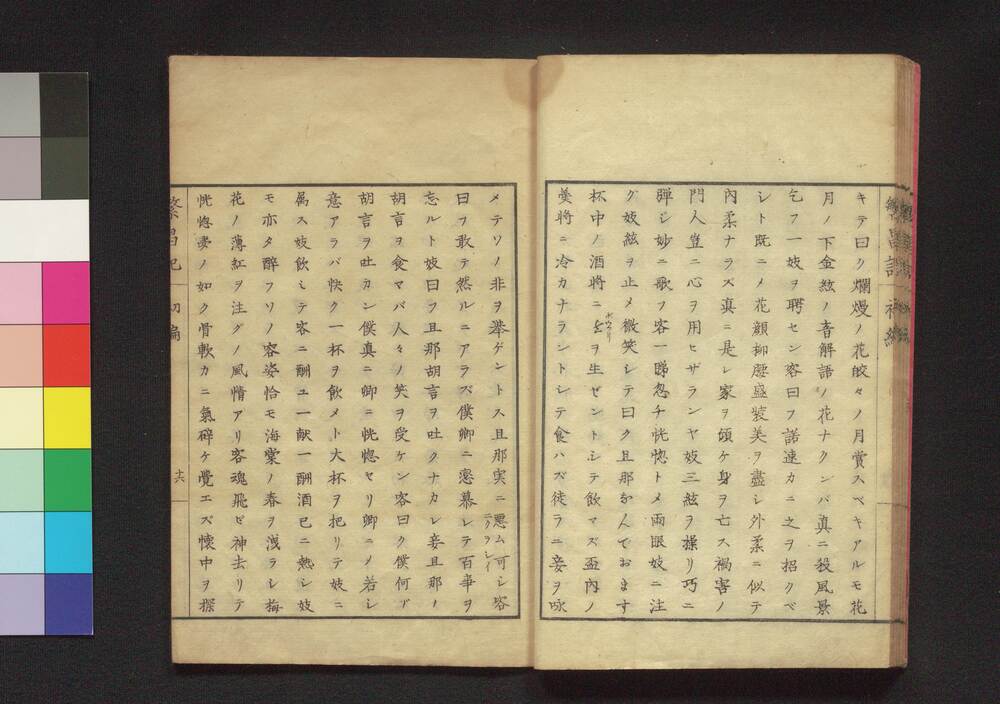 キテ曰ク爛熳ノ花皎々ノ月賞スベキアルモ花
月ノ下金絃ノ音解語ノ花ナクンバ真ニ殺風景
乞フ一妓ヲ聘セン容曰フ諾速カニ之ヲ招クベ
シト既ニメ花顔柳腰盛装美ヲ盡シ外柔ニ似テ
內柔ナラズ真ニ是レ家ヲ傾ケ身ヲ亡ス禍害ノ
門人豈ニ心ヲ用ヒサランヤ妓三絃ヲ操リ巧ニ
彈シ妙ニ歌フ客一睇忽チ恍惚トメ兩眼妓ニ注
グ妓絃ヲ止メ微笑シテ曰ク旦那なんでおます
杯中ノ酒將ニヲ生ゼントシテ飲マズ盃內ノ
羹將ニ冷カナラントレテ食ハズ徒ラニ妾ヲ咏
メテソノ非ヲ挙ゲントス旦那実ニ悪ム可シ客
曰フ敢テ然ルニアラズ僕卿ニ戀慕レテ百事ヲ
忘ルト妓曰フ旦那胡言ヲ吐クナカレ妾旦那ノ
胡言ヲ食マバ人々ノ笑ヲ受ケン容曰ク僕何ゾ
胡言ヲ吐カン僕真ニ卿ニ恍惚セリ卿ニメ若シ
意アラバ快ク一杯ヲ飲メト大杯ヲ把リテ妓ニ
属ス妓飲ミテ容ニ酬ユ一献一酬酒已ニ熱シ妓
モ亦タ醉フソノ容姿恰モ海棠ノ春ヲ洩ラシ梅
花ノ薄紅ヲ注グノ風情アリ客魂飛ビ神去リテ
恍惚夢ノ如ク骨軟カニ氣碎ケ覺エズ懷中ヲ探
繁昌記 初編
十六